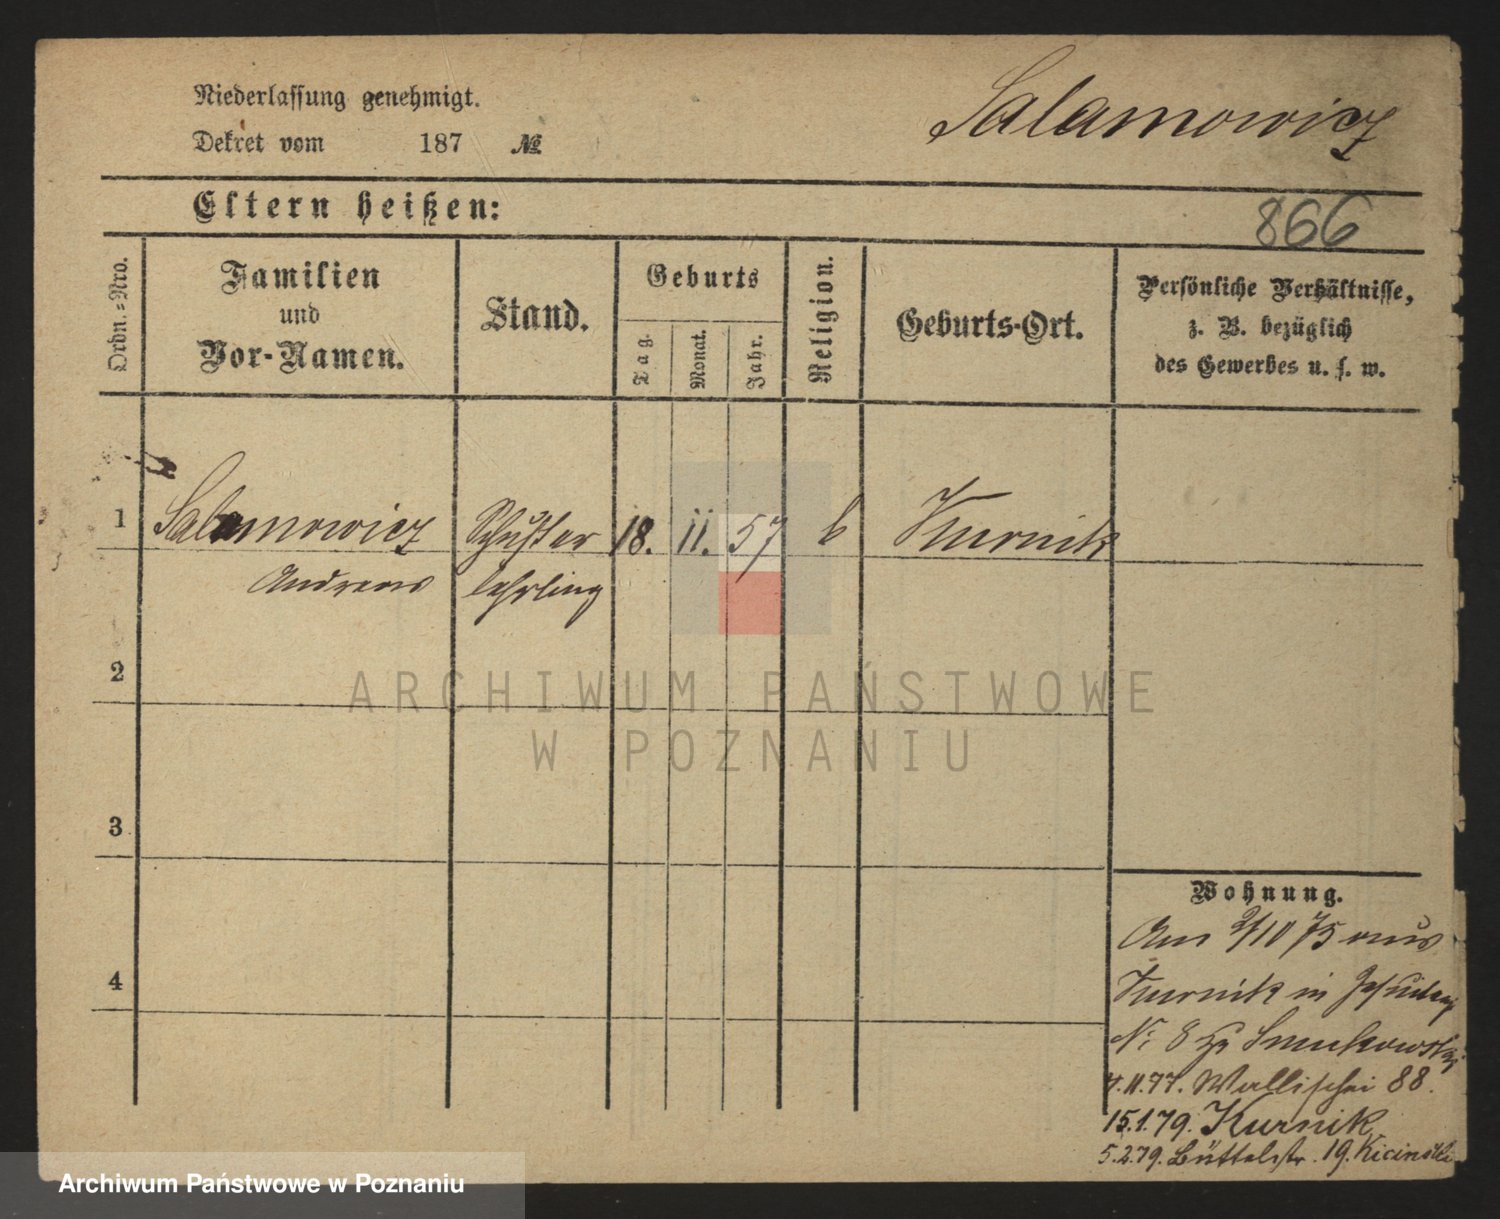 Niederlassung genehmigt.
Dekret vom 187 №
Salamowicz
Eltern heißen:
866
Ordn.-Nro.
Familien
und
Vor-Namen.
Stand.
Geburts
Tag.
Monat.
Jahr.
Religion.
Geburts-Ort.
Persönliche Verhältnisse,
z. B. bezüglich
des Gewerbes u. s. w.
1 Salamowicz Schuster 18. 11. 57 k Kurnik
Andreas lehrling
2
3
4
Wohnung.
Am 9/10 75 aus
Kurnik in
No 8 bei
7.11.77. Wallischei 88.
15.1.79. Kurnik
5.2.79. Büttelstr. 19. Kicinski
ARCHIWUM PAŃSTWOWE
W POZNANIU
Archiwum Państwowe w Poznaniu